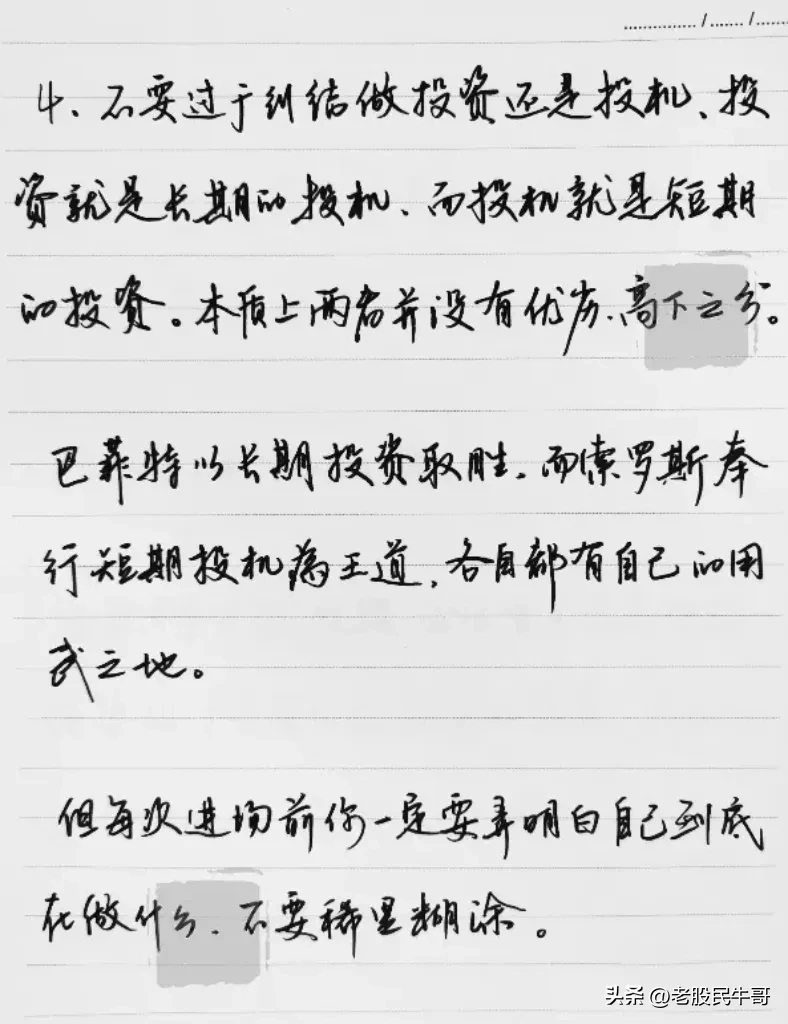 4、不要过于纠结做投资还是投机、投
资就是长期的投机、而投机就是短期
的投资。本质上两者并没有优劣、高下之分。
巴菲特以长期投资取胜、而索罗斯奉
行短期投机为王道、各自都有自己的用
武之地。
但每次进场前你一定要弄明白自己到底
在做什么、不要稀里糊涂。
头条 @老股民牛哥